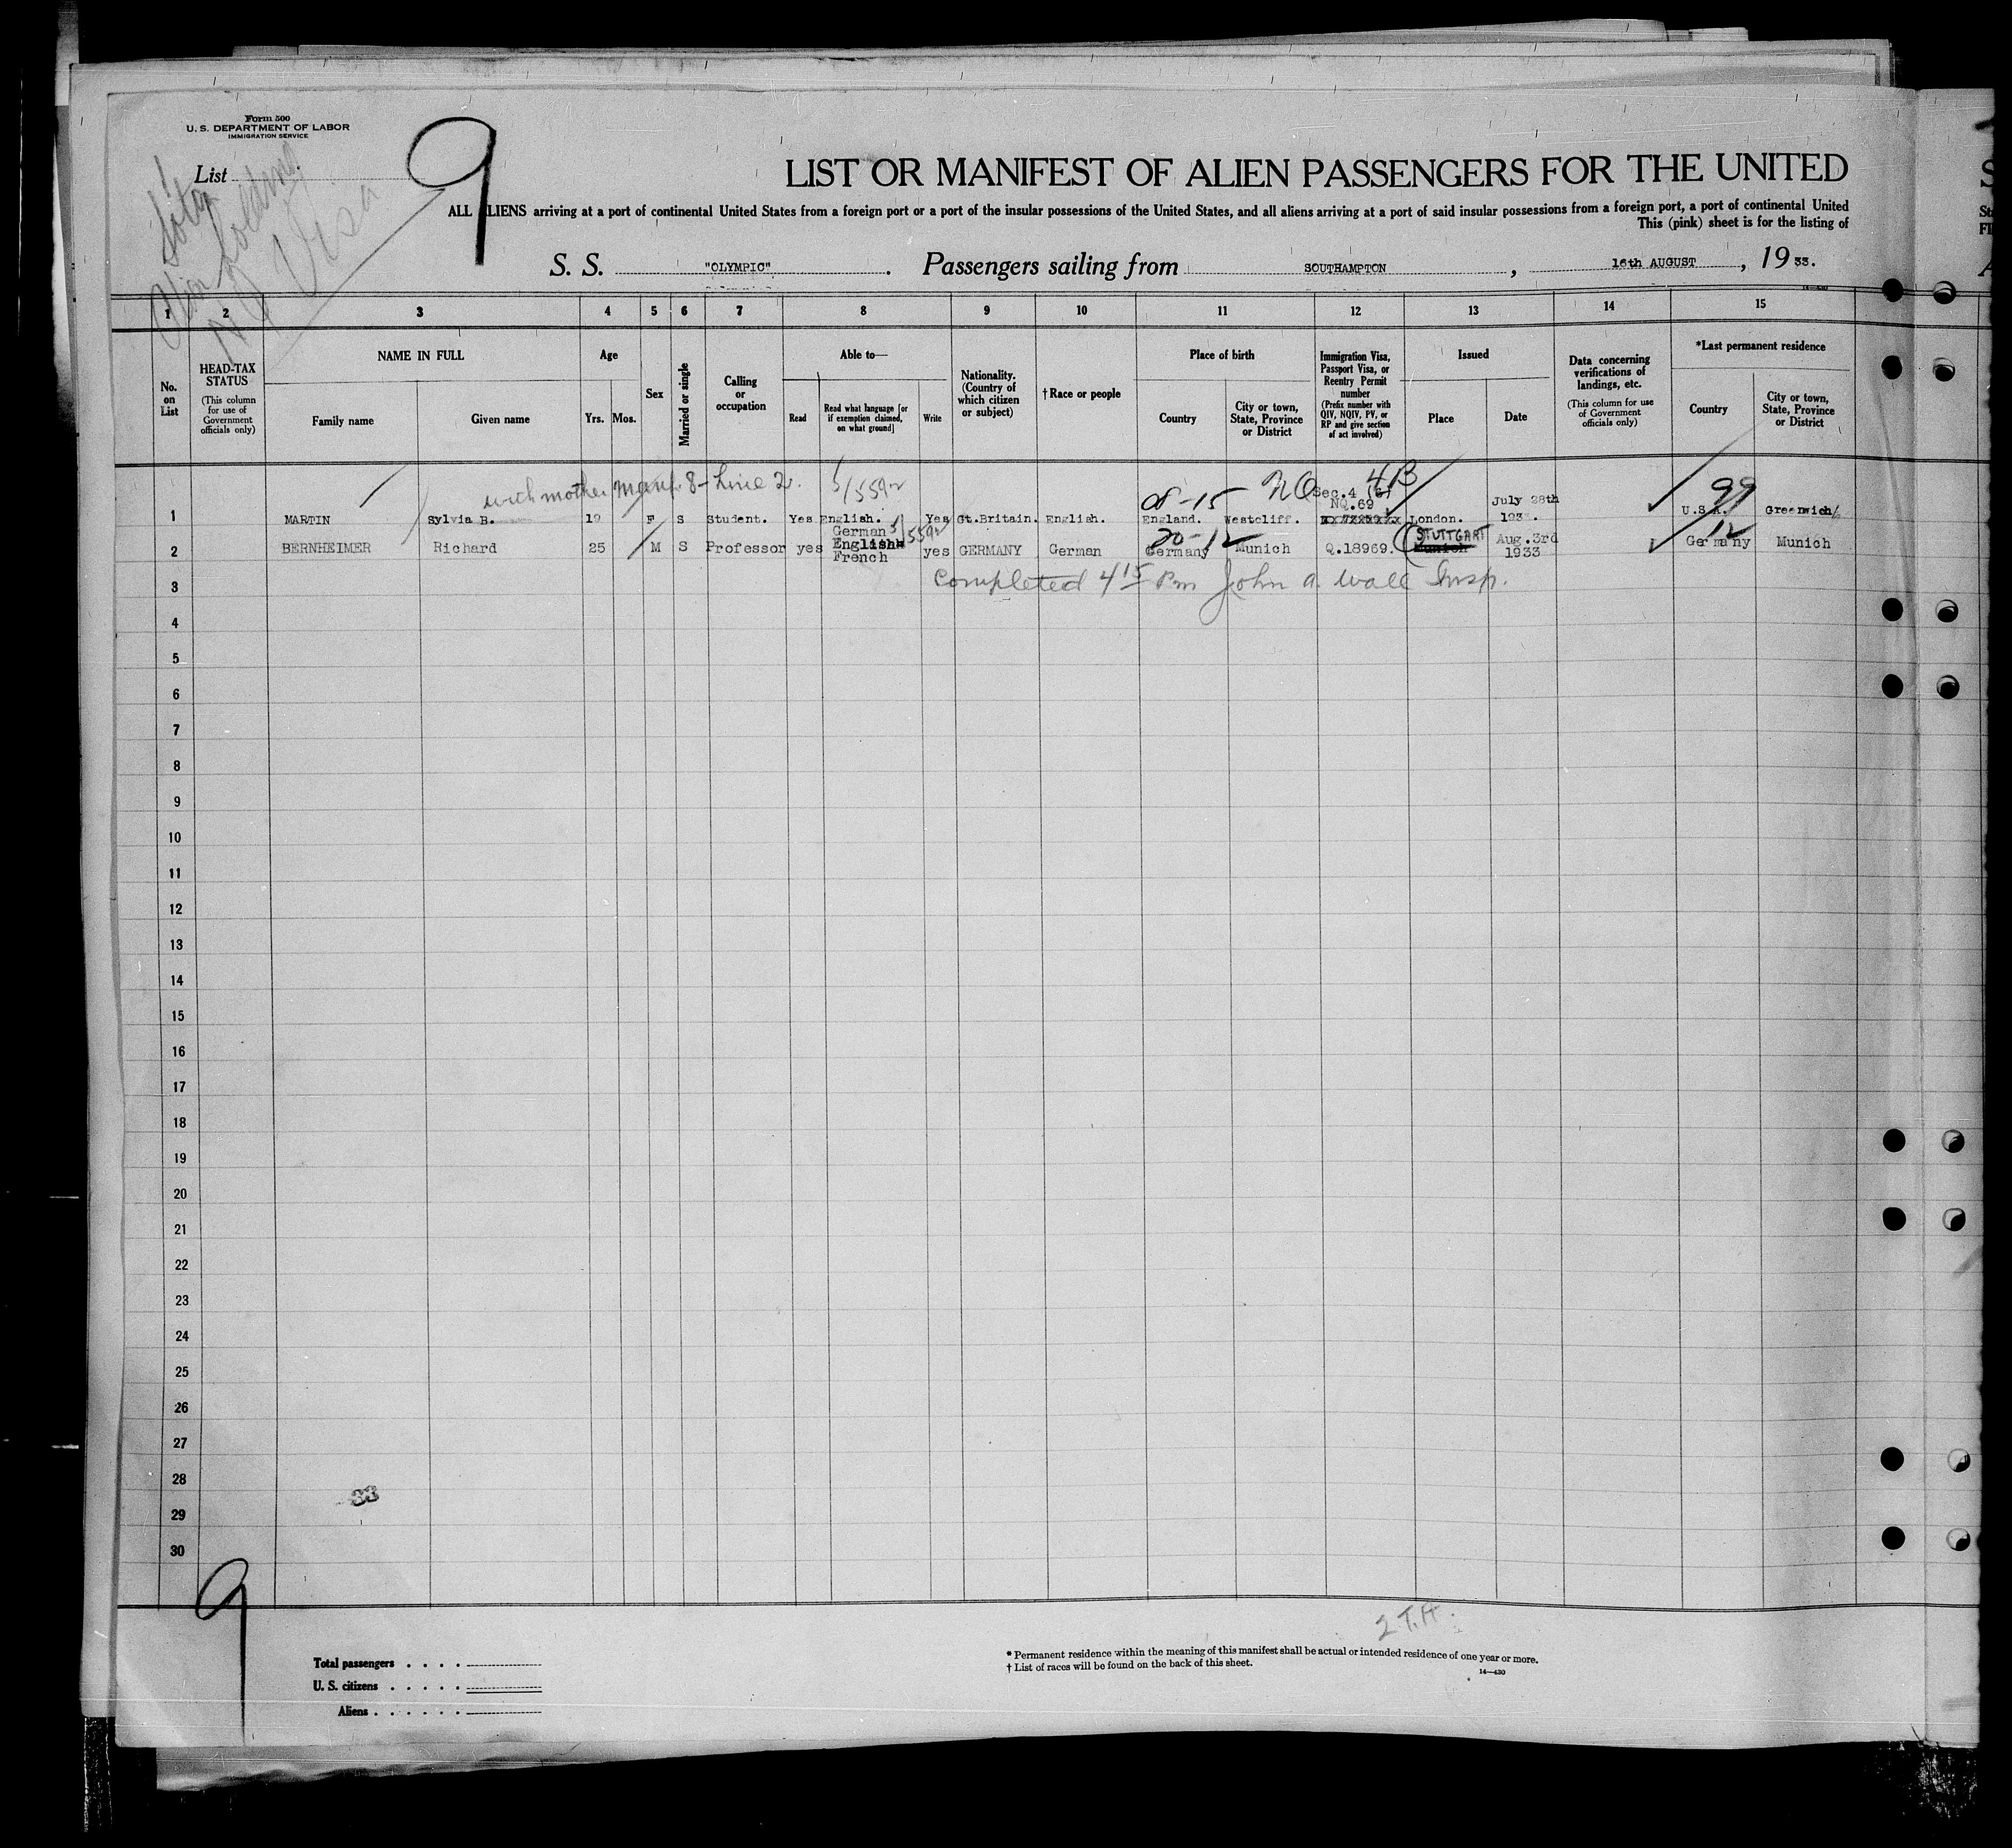 Form 500
U. S. DEPARTMENT OF LABOR
IMMIGRATION SERVICE
List
9
No Visa
LIST OR MANIFEST OF ALIEN PASSENGERS FOR THE UNITED
ALL ALIENS arriving at a port of continental United States from a foreign port or a port of the insular possessions of the United States, and all aliens arriving at a port of said insular possessions from a foreign port, a port of continental United
This (pink) sheet is for the listing of
S. S. "OLYMPIC" . Passengers sailing from SOUTHAMPTON , 16th AUGUST , 19 33.
1 2 3 4 5 6 7 8 9 10 11 12 13 14 15
No. on List
HEAD-TAX STATUS (This column for use of Government officials only)
NAME IN FULL
Family name
Given name
Age
Yrs. Mos.
Sex
Married or single
Calling or occupation
Able to—
Read
Read what language [or if exemption claimed, on what ground]
Write
Nationality. (Country of which citizen or subject)
† Race or people
Place of birth
Country
City or town, State, Province or District
Immigration Visa, Passport Visa, or Reentry Permit number (Prefix number with QIV, NQIV, PV, or RP and give section of act involved)
Issued
Place
Date
Data concerning verifications of landings, etc. (This column for use of Government officials only)
*Last permanent residence
Country
City or town, State, Province or District
with mother Manf. 8 - Line 2. 5/5592 08-15 NQ Sec.4 (6) 4B 99
1 MARTIN Sylvia B. 19 F S Student. Yes English. Yes Gt.Britain. English. England. Westcliff. NQ.69 London. July 28th 1933. U.S.A. Greenwich
5/5592 20-12 12
2 BERNHEIMER Richard 25 M S Professor yes German English French yes GERMANY German Germany Munich Q.18969. STUTTGART Munich Aug.3rd 1933 Germany Munich
3 Completed 4 15 Pm John A. Wall Insp.
4
5
6
7
8
9
10
11
12
13
14
15
16
17
18
19
20
21
22
23
24
25
26
27
28
33
29
30
9
2 T.A.
Total passengers . . . .
U. S. citizens . . . . .
Aliens . . . . . .
* Permanent residence within the meaning of this manifest shall be actual or intended residence of one year or more.
† List of races will be found on the back of this sheet.
14—430